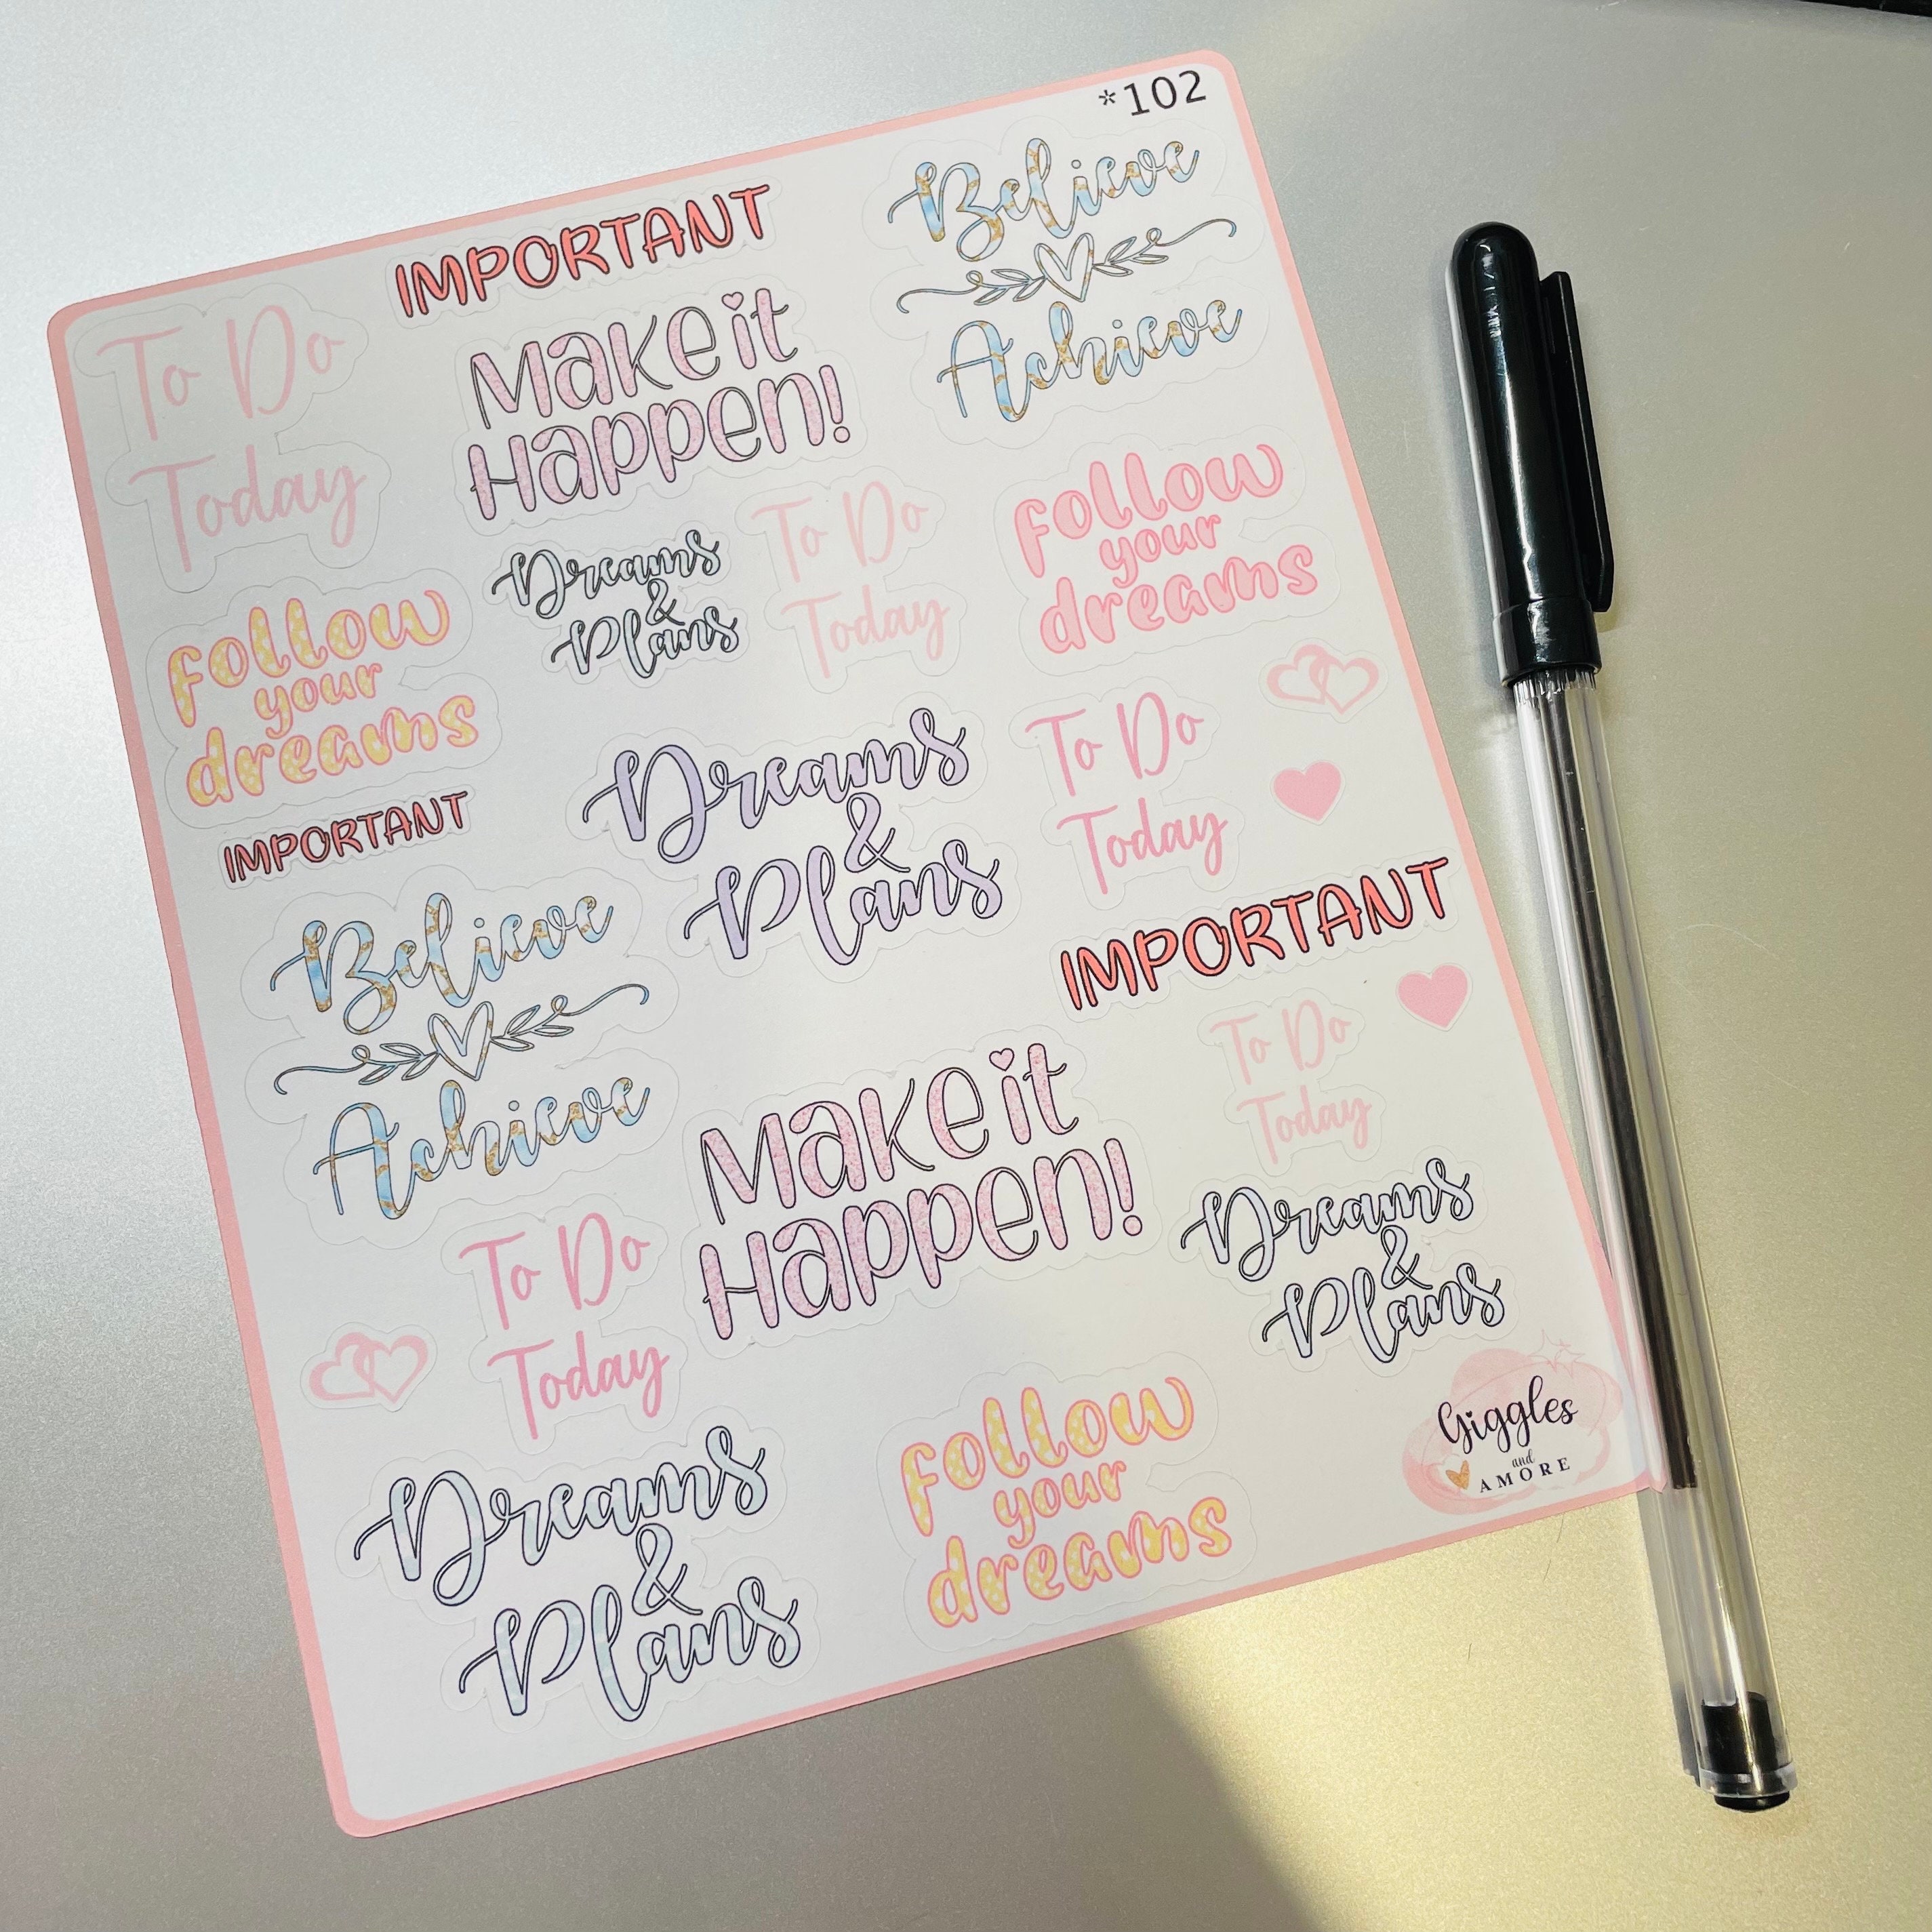 *102
IMPORTANT
Believe
Achieve
To Do
Today
Make it
Happen!
follow
your
dreams
Dreams
&
Plans
To Do
Today
follow
your
dreams
IMPORTANT
Dreams
&
Plans
To Do
Today
IMPORTANT
Believe
Achieve
Make it
Happen!
To Do
Today
To Do
Today
Dreams
&
Plans
Dreams
&
Plans
follow
your
dreams
Giggles
and
AMORE